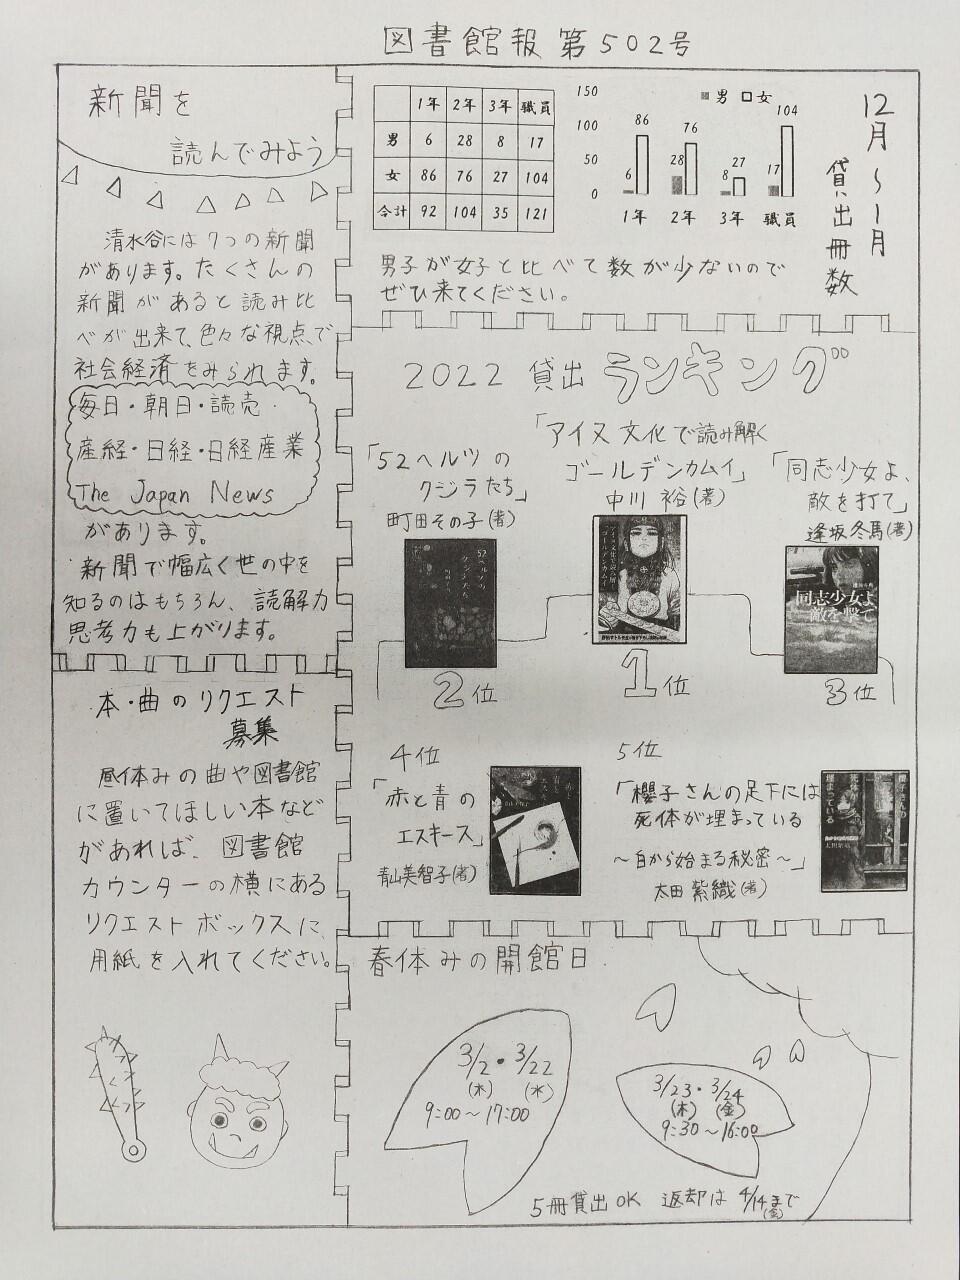 図書館報 第502号
新聞を
読んでみよう
清水谷には7つの新聞
があります。たくさんの
新聞があると読み比
べが出来て、色々な視点で
社会経済をみられます。
毎日・朝日・読売・
産経・日経・日経産業
The Japan News
があります。
新聞で幅広く世の中を
知るのはもちろん、読解力
思考力も上がります。
本・曲のリクエスト
募集
昼休みの曲や図書館
に置いてほしい本など
があれば、図書館
カウンターの横にある
リクエストボックスに、
用紙を入れてください。
12月~1月
貸出冊数
1年 2年 3年 職員
男 6 28 8 17
女 86 76 27 104
合計 92 104 35 121
男 女
150
100
50
0
6 86 28 76 8 27 17 104
1年 2年 3年 職員
男子が女子と比べて数が少ないので
ぜひ来てください。
2022 貸出 ランキング
「アイヌ文化で読み解く
ゴールデンカムイ」
中川 裕(著)
アイヌ文化で読み解く
ゴールデンカムイ
1位
「52ヘルツの
クジラたち」
町田その子(著)
52ヘルツの
クジラたち
2位
「同志少女よ、
敵を打て」
逢坂冬馬(著)
同志少女よ
敵を撃て
3位
4位
「赤と青の
エスキース」
青山美智子(著)
5位
「櫻子さんの足下には
死体が埋まっている
~白から始まる秘密~」
太田 紫織(著)
櫻子さんの
足下には
死体が
埋まっている
春休みの開館日
3/2・3/22
(木) (水)
9:00~17:00
3/23・3/24
(木) (金)
9:30~16:00
5冊貸出OK 返却は 4/14まで
(金)